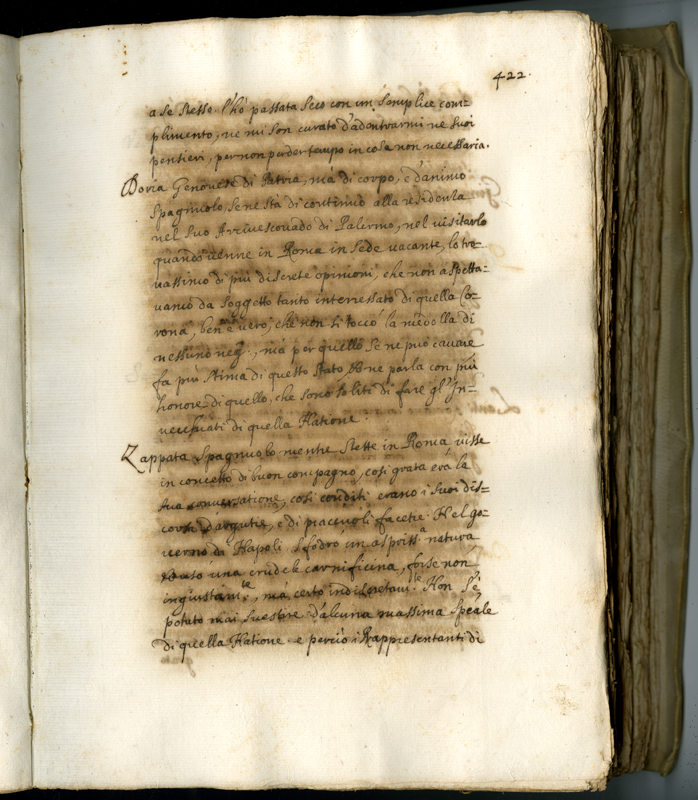 422.
a se stesse. l'hó passata seco con un semplice com-
plimento, ne mi son curato d'adentrarmi ne suoi
pensieri, per non perder tempo in cosa non necessaria.
Doria Genovese di Patria, má di corpo, e d'animo
Spagnuolo, se ne stá di continuo alla residenza
nel suo Arcivescovado di Palermo, nel visitarlo
quando venne in Roma in sede vacante, lo tro-
vassimo di più discrete opinioni, che non aspetta-
vamo da soggetto tanto interressato di quella Co-
rona, ben è vero, che non si toccó la midolla di
nessuno neg., má per quello se ne può cavare
fa più stima di questo stato, et ne parla con più
honore di quello, che sono soliti di fare gl'In-
vecchiati di quella Natione.
Zappata Spagnuolo mentre stette in Roma visse
in concetto di buon compagno, così grata era la
sua conversatione, così conditi erano i suoi dis-
corsi d'argutie, e di piacevoli facetie. Nel go-
verno di Napoli sfodró un aspriss.a natura
et usó una crudele carnificina, forse non
ingiustam.te, má certo indiscretam.te. Non s'é
potuto mai svestire d'alcuna massima speale
di quella Natione. e perció i Rappresentanti di